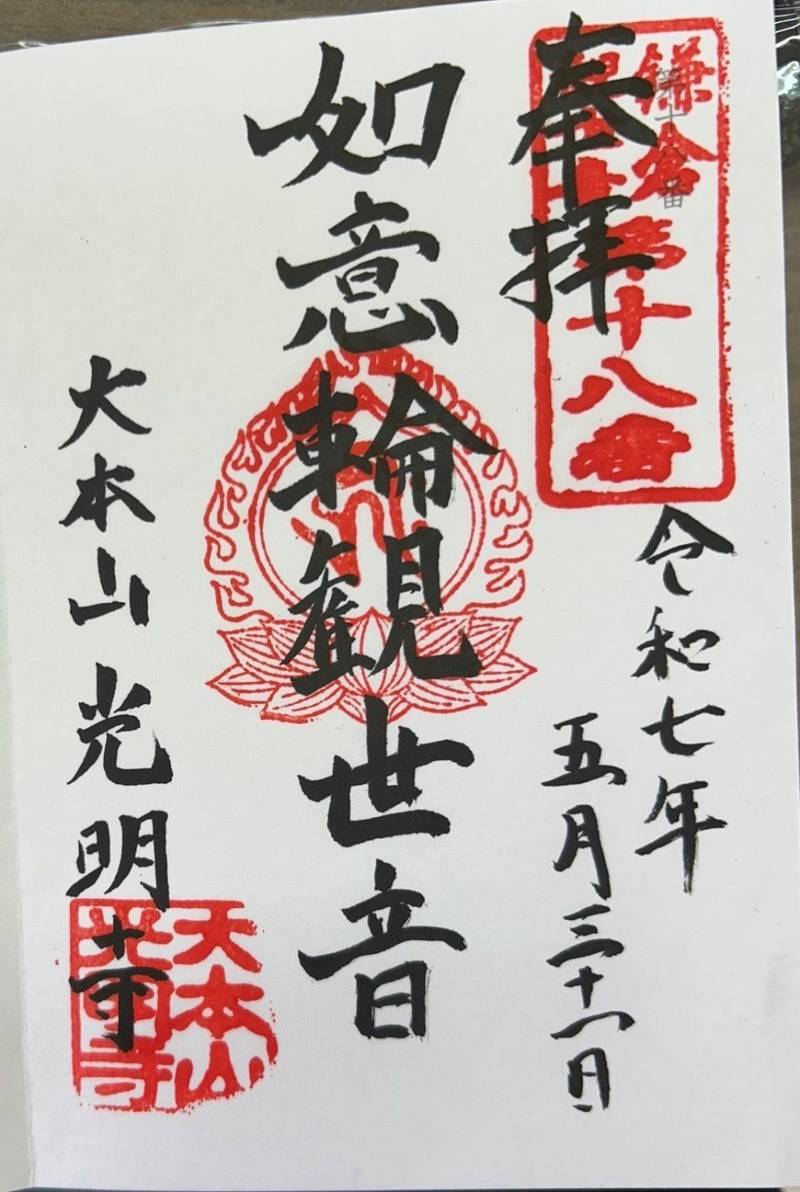 鎌倉
第十八番
第十八番
奉拝
令和七年
五月三十一日
如意輪観世音
大本山光明寺
大本山
光明寺